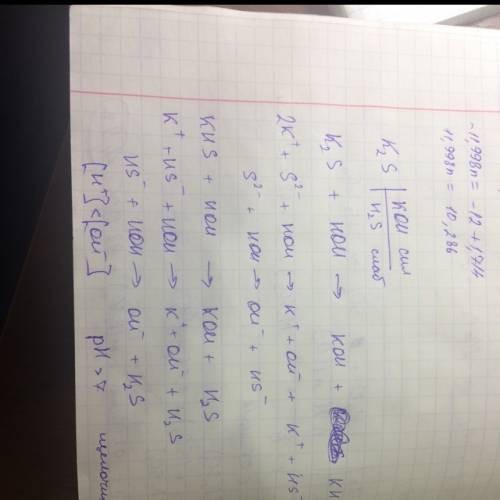 -11,998n = -12 + 1,714
11,998n = 10,286
K₂S | KOH сил
H₂S слаб
K₂S + HOH → KOH + KH
2K⁺ + S²⁻ + HOH → K⁺ + OH⁻ + K⁺ + HS⁻
S²⁻ + HOH → OH⁻ + HS⁻
KHS + HOH → KOH + H₂S
K⁺ + HS⁻ + HOH → K⁺ + OH⁻ + H₂S
HS⁻ + HOH → OH⁻ + H₂S
[H⁺] < [OH⁻] pH > 7 щелочн